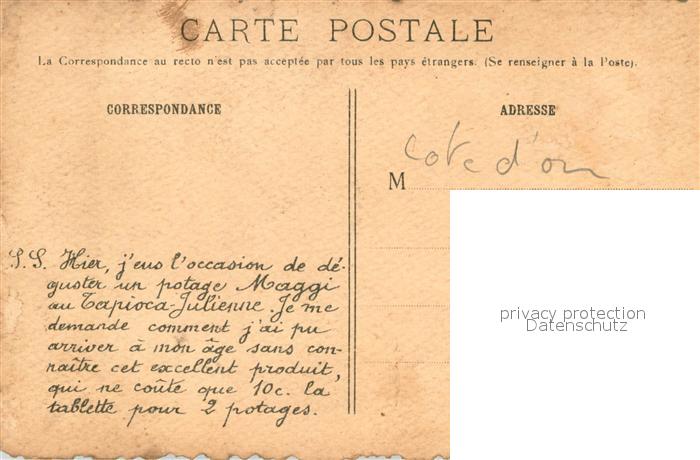 CARTE POSTALE
La Correspondance au recto n'est pas acceptée par tous les pays étrangers. (Se renseigner à la Poste).
CORRESPONDANCE
ADRESSE
Cote d'or
M
P.S. Hier, j'eus l'occasion de dé-
guster un potage Maggi
au Tapioca-Julienne. Je me
demande comment j'ai pu
arriver à mon âge sans con-
naître cet excellent produit,
qui ne coûte que 10c. la
tablette pour 2 potages.
privacy protection
Datenschutz